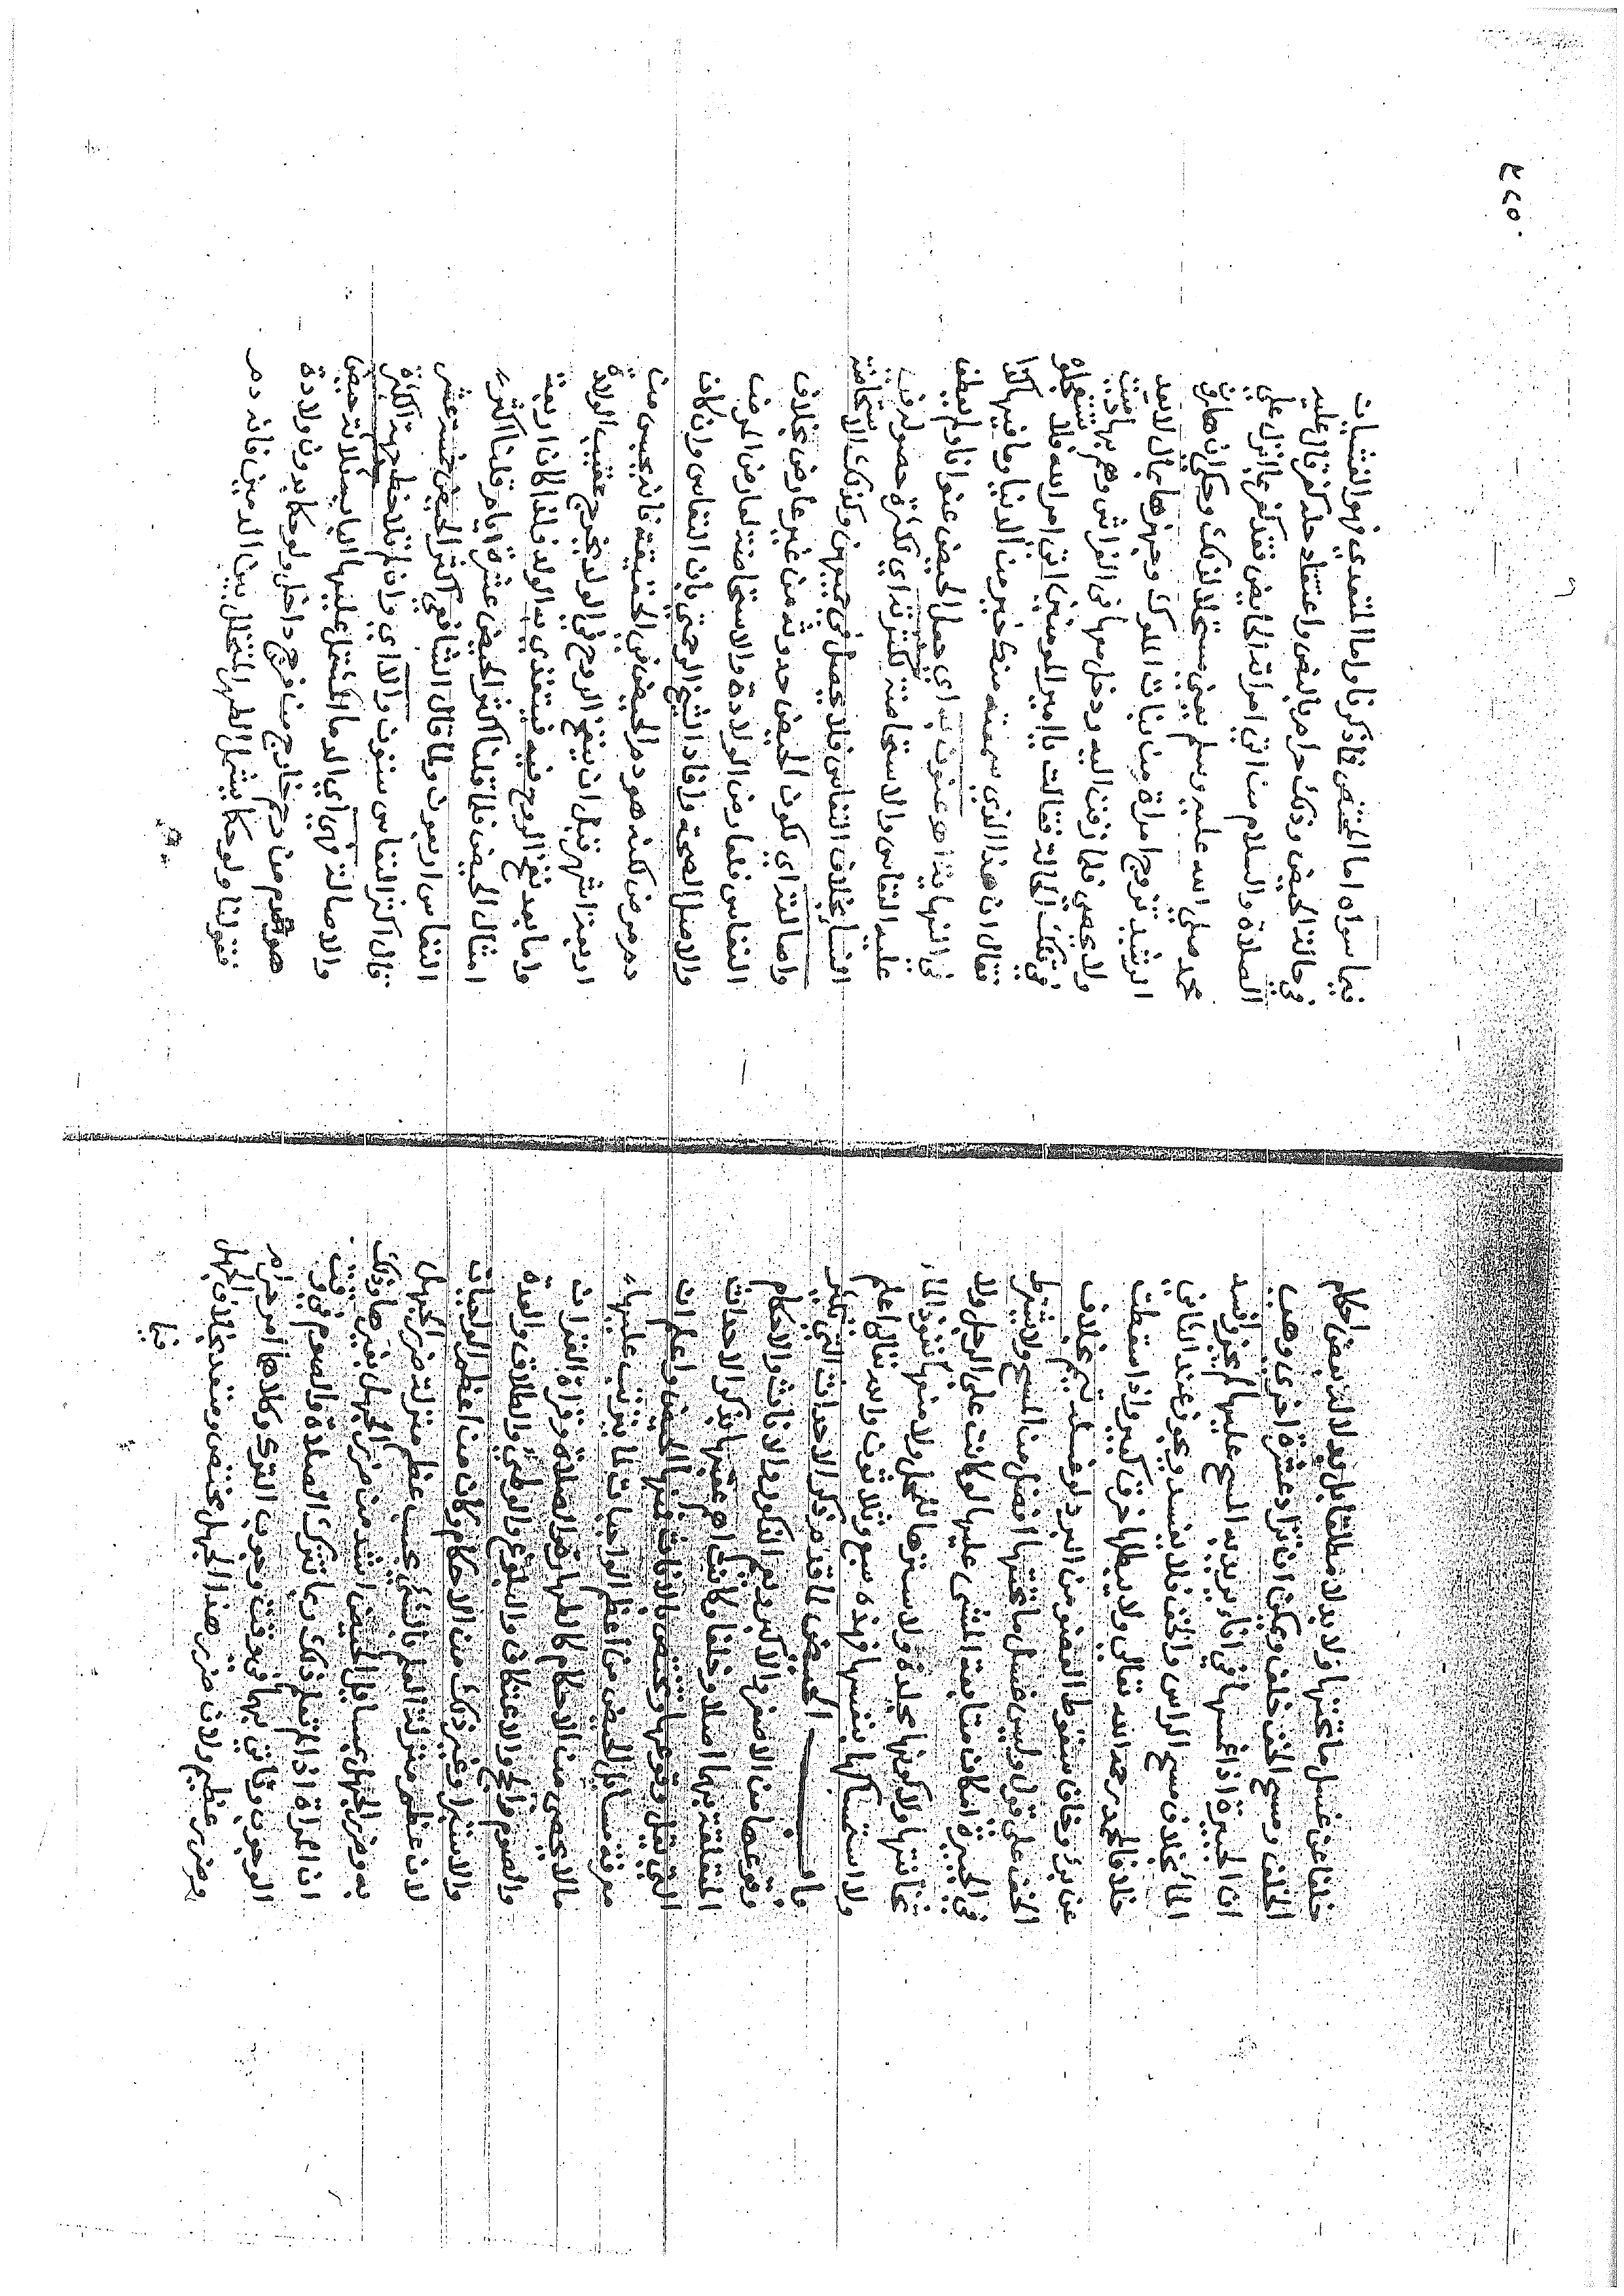 خلفا عن غسل ما تحتها ولا بدلا مطلقا بل بدلالة بعض احكام
الخلف ومسح الخف خلف ويمكن ان تزاد عشرة اخرى وهي
ان الجبيرة اذا غمسها في اناء يريد به المسح عليها لم يجز وافسد
الماء بخلاف مسح الراس والخف فلا يفسد ويجوز عند الثاني
خلافا لمحمد رحمه الله تعالى ولا يبطلها خرق كبير واذا سقطت
عن برء وخاف سقوط العضو من البرد لو غسله تيمم بخلاف
الخف على قول وليس غسل ما تحتها افضل من المسح ولا يشترط
في الجبيرة امكان متابعة المشي عليها لو كانت على الرجل ولا
ثخانتها ولا كونها مجلدة ولا سترها للمحل ولا منعها نفوذ الماء
ولا استمساكها بنفسها فهذه سبع وثلاثون والله تعالى اعلم
باب الحيض لما قدم ذكر الاحداث التي يكثر
وقوعها من الاصغر والاكبر ويعم الذكور والاناث والاحكام
المتعلقة بها اصلا وخلفا وكانت اهم عقبها بذكر الاحداث
التي يقل وقوعها وتختص بالاناث فمنها الحيض واعلم ان
معرفة مسائل الحيض من اعظم الواجبات لما يترتب عليها
ما لا يحصى من الاحكام كالطهارة والصلاة وقراة القران
والصوم والحج والاعتكاف والبلوغ والوطي والطلاق والعدة
والاستبرا وغير ذلك من الاحكام وكان من اعظم الواجبات
لان عظم منزلة العلم بالشي بحسب عظم منزلة ضرر الجهل
به وضرر الجهل بمسائل الحيض اشد من ضرر الجهل بغيرها وذلك
ان المراة اذا لم تعلم ذلك ربما تترك الصلاة والصوم في وقت
الوجوب وتاتي بها في وقت وجوب الترك وكلاهما امر حرام
وضرر عظيم ولان ضرر هذا الجهل يختص ومتعد بخلاف الجهل
فيما
٢٢٥
فيما سواه اما المختص فما ذكرنا واما المتعدي فهو الغشيان
في حالة الحيض وذلك حرام بالنص واعتقاد حله كفر قال عليه
الصلاة والسلام من اتى امراته الحايض فقد كفر بما انزل على
محمد صلى الله عليه وسلم يعني مستحلا لذلك وحكي ان هارون
الرشيد تزوج امراة من بنات الملوك وجهزها بمال لا يعد
ولا يحصى فلما زفت اليه ودخل معها في الفراش وهم بها دميت
في تلك الحالة فقالت يا امير المومنين اتى امر الله فلا تستعجلوه
فقال ان هذا الذي سمعته منك خير من الدنيا وما فيها لذا
في النهاية اهـ عنون به اي جعل الحيض عنوانا ولم يعطف
عليه النفاس والاستحاضة لكثرته اي لكثرة حصوله في
النسا بخلاف النفاس فلا يحصل في جميعهن وكذلك الاستحاضة
واصالته اي لكون الحيض حدوثه من غير عارض بخلاف
النفاس فلعارض الولادة والاستحاضة لعارض المرض
والاصل الصحة وافاد الشيخ الرحمتي بان النفاس وان كان
دم مرض لكنه هو دم الحيض في الحقيقة فانه يحبس من
اربعة اشهر قبل ان ينفخ الروح في الولد يخرج عقيب الولادة
واما بعد نفخ الروح فيه فيتغذي به الولد فلذا كان اربعة
امثال الحيض فلما قلنا اكثر الحيض عشرة ايام قلنا اكثر
النفاس اربعون ولما قال الشافعي اكثر الحيض خمسة عشر
قال اكثر النفاس ستون والا اي وان لم تلاحظ جهة الكثرة
والاصالة فهي اي الدما المشتمل عليها الباب ثلاثة حيض
هو دم من رحم خارج من فرج داخل ولو حكما بدون ولادة
فقولنا ولو حكما يشمل الطهر المتخلل بين الدمين فانه دم